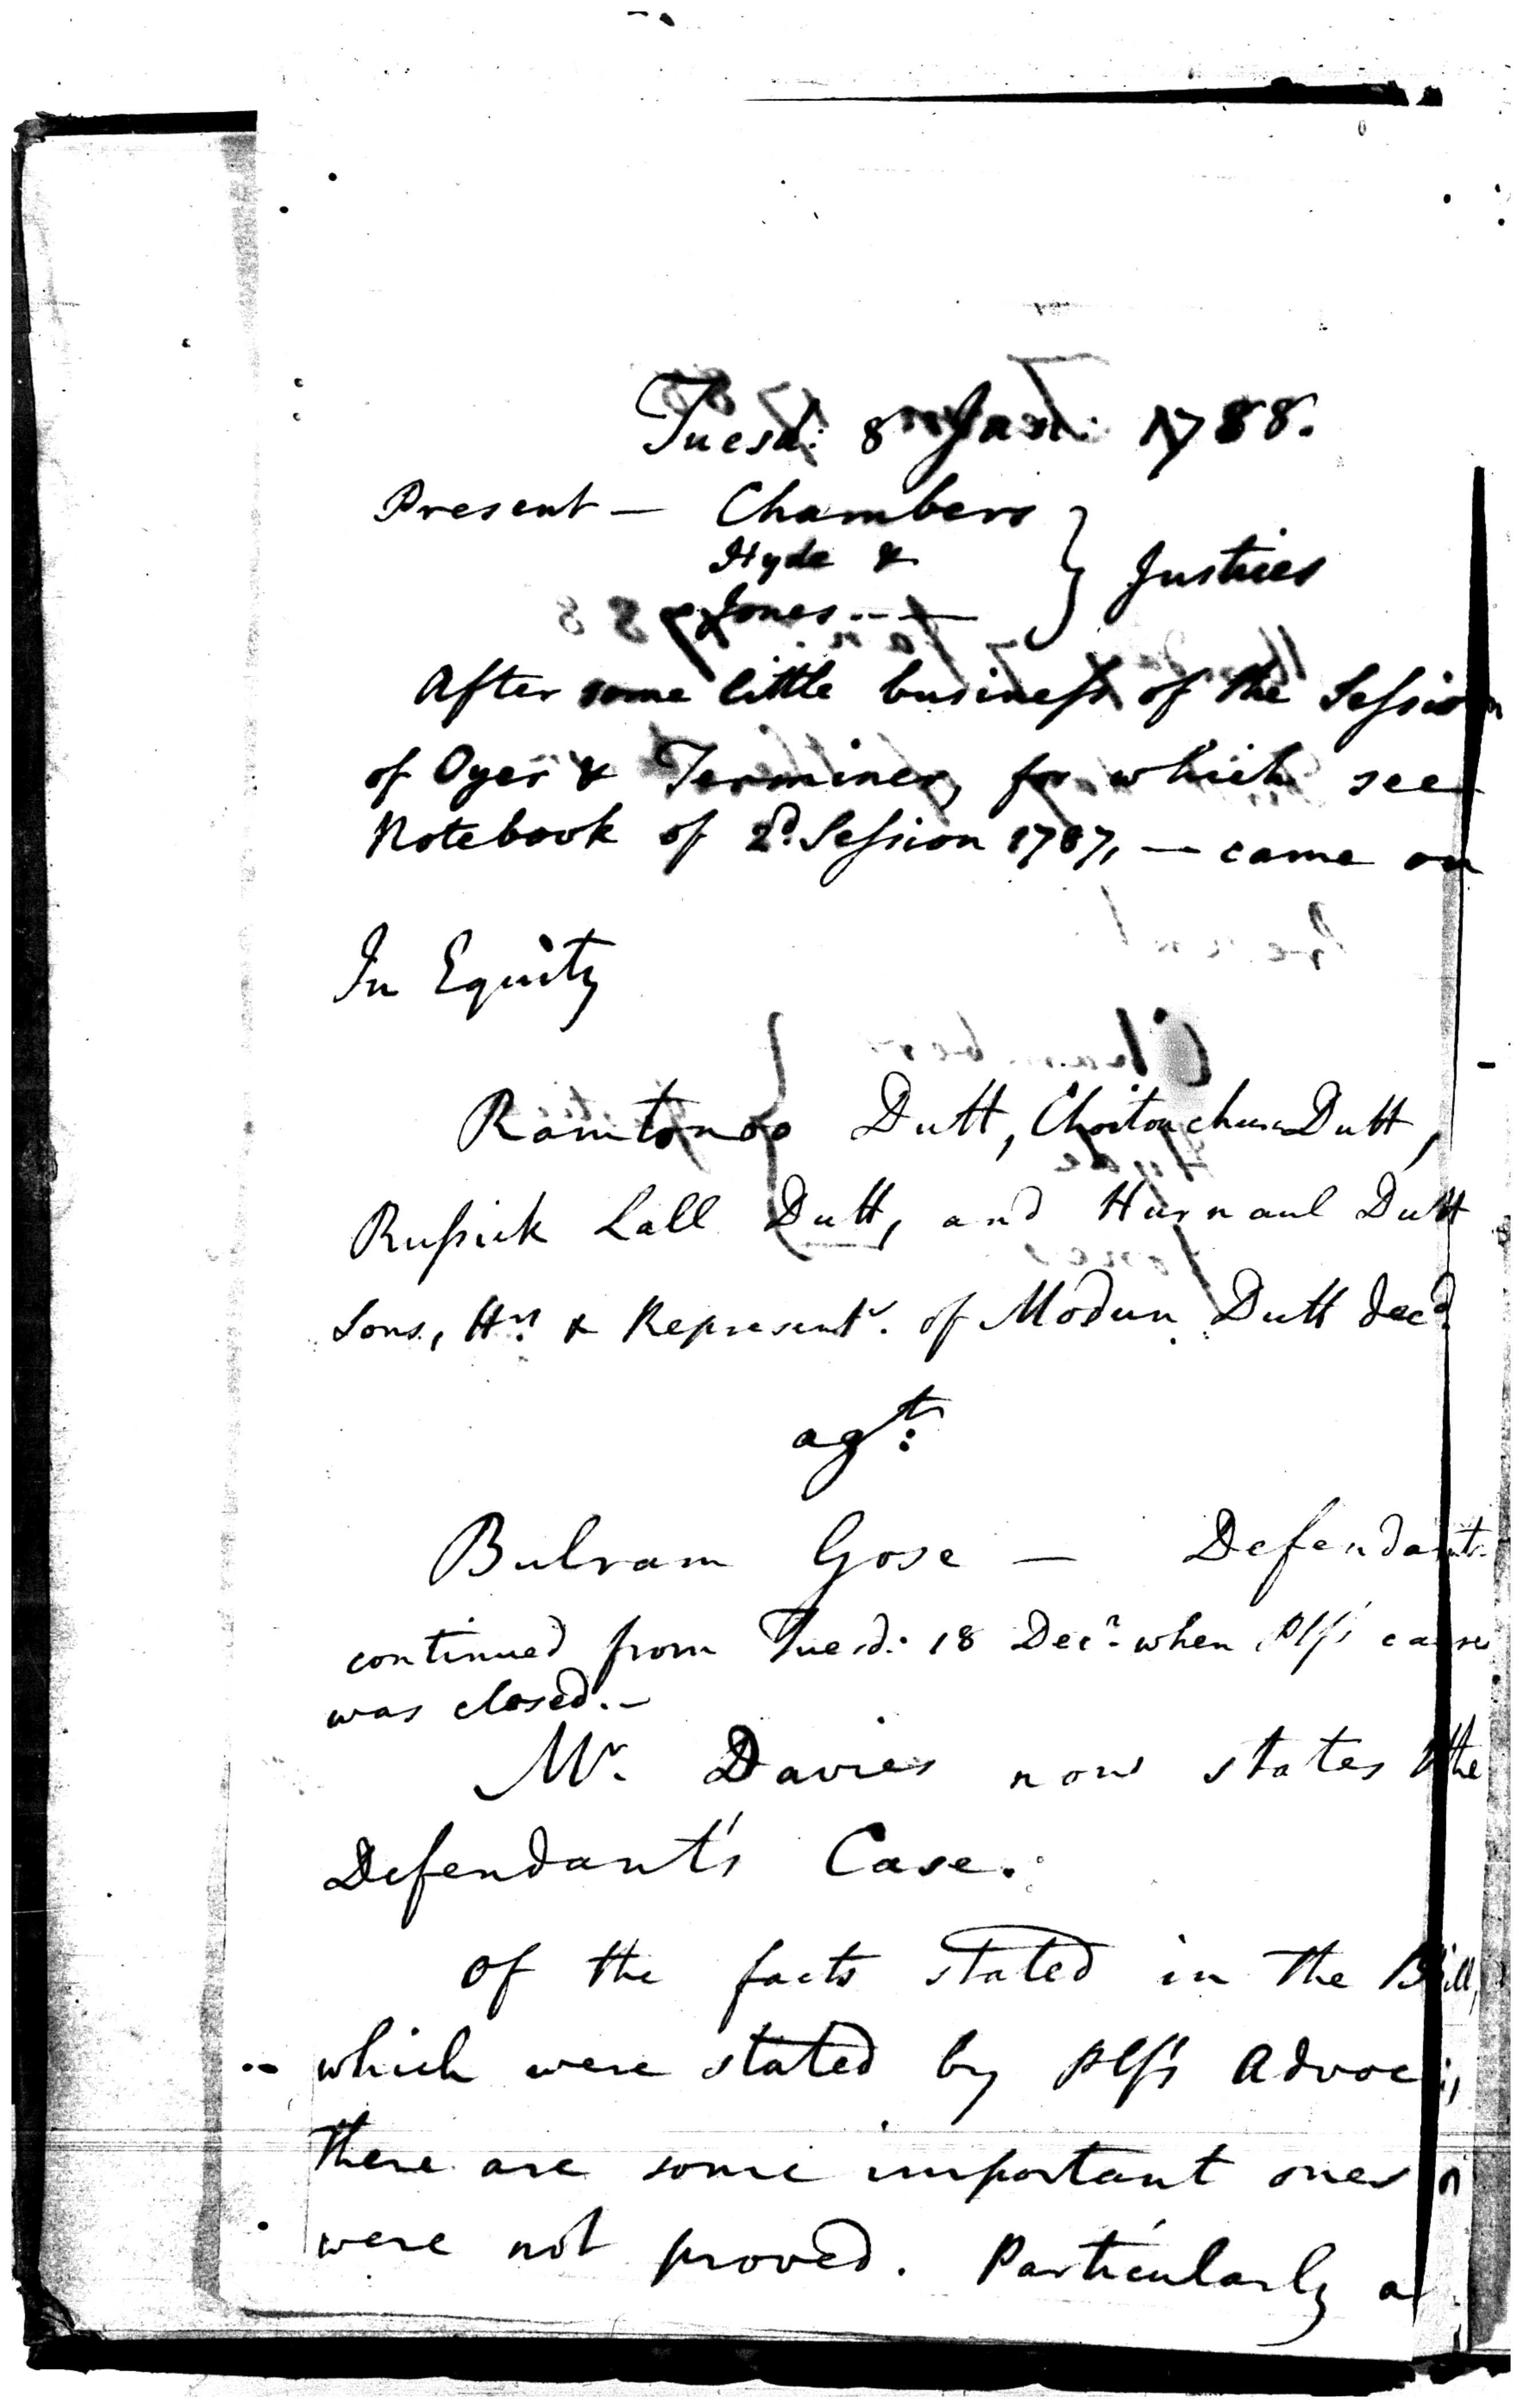 Tuesd: 8 Jan: 1788.
Present — Chambers
Hyde & } Justices
Jones —
After some little business of the Session
of Oyer & Terminer, for which see
Notebook of 2d. Session 1787, — came on
In Equity
Ramtonoo Dutt, Dutt,
Russick Lall Dutt, and Hurnaul Dutt
Sons, Hrs. & Represent. of Modun Dutt decd.
agt:
Bulram Gose — Defendant.
continued from Tuesd: 18 Decr. when Plf's cause
was closed. —
Mr. Davies now states the
Defendant's Case.
Of the facts stated in the Bill,
which were stated by Plf's Advoc
there are some important ones
were not proved. Particularly a